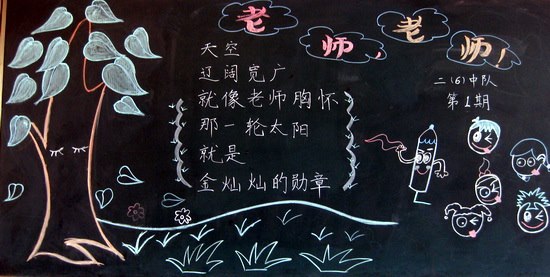 老师,老师!
天空
辽阔宽广
就像老师胸怀
那一轮太阳
就是
金灿灿的勋章
二(6)中队
第1期